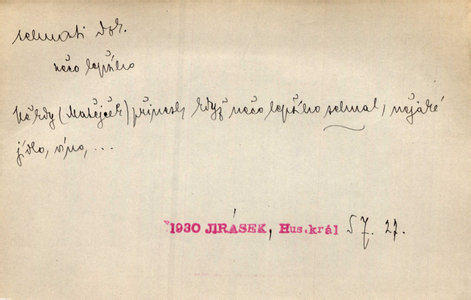 sehnati dok.
něco lepšího
někdy (Matějček) přinesl, když něco lepšího sehnal, nějaké
jídlo, víno, ...
1930 JIRÁSEK, Hus.král 57. 27.